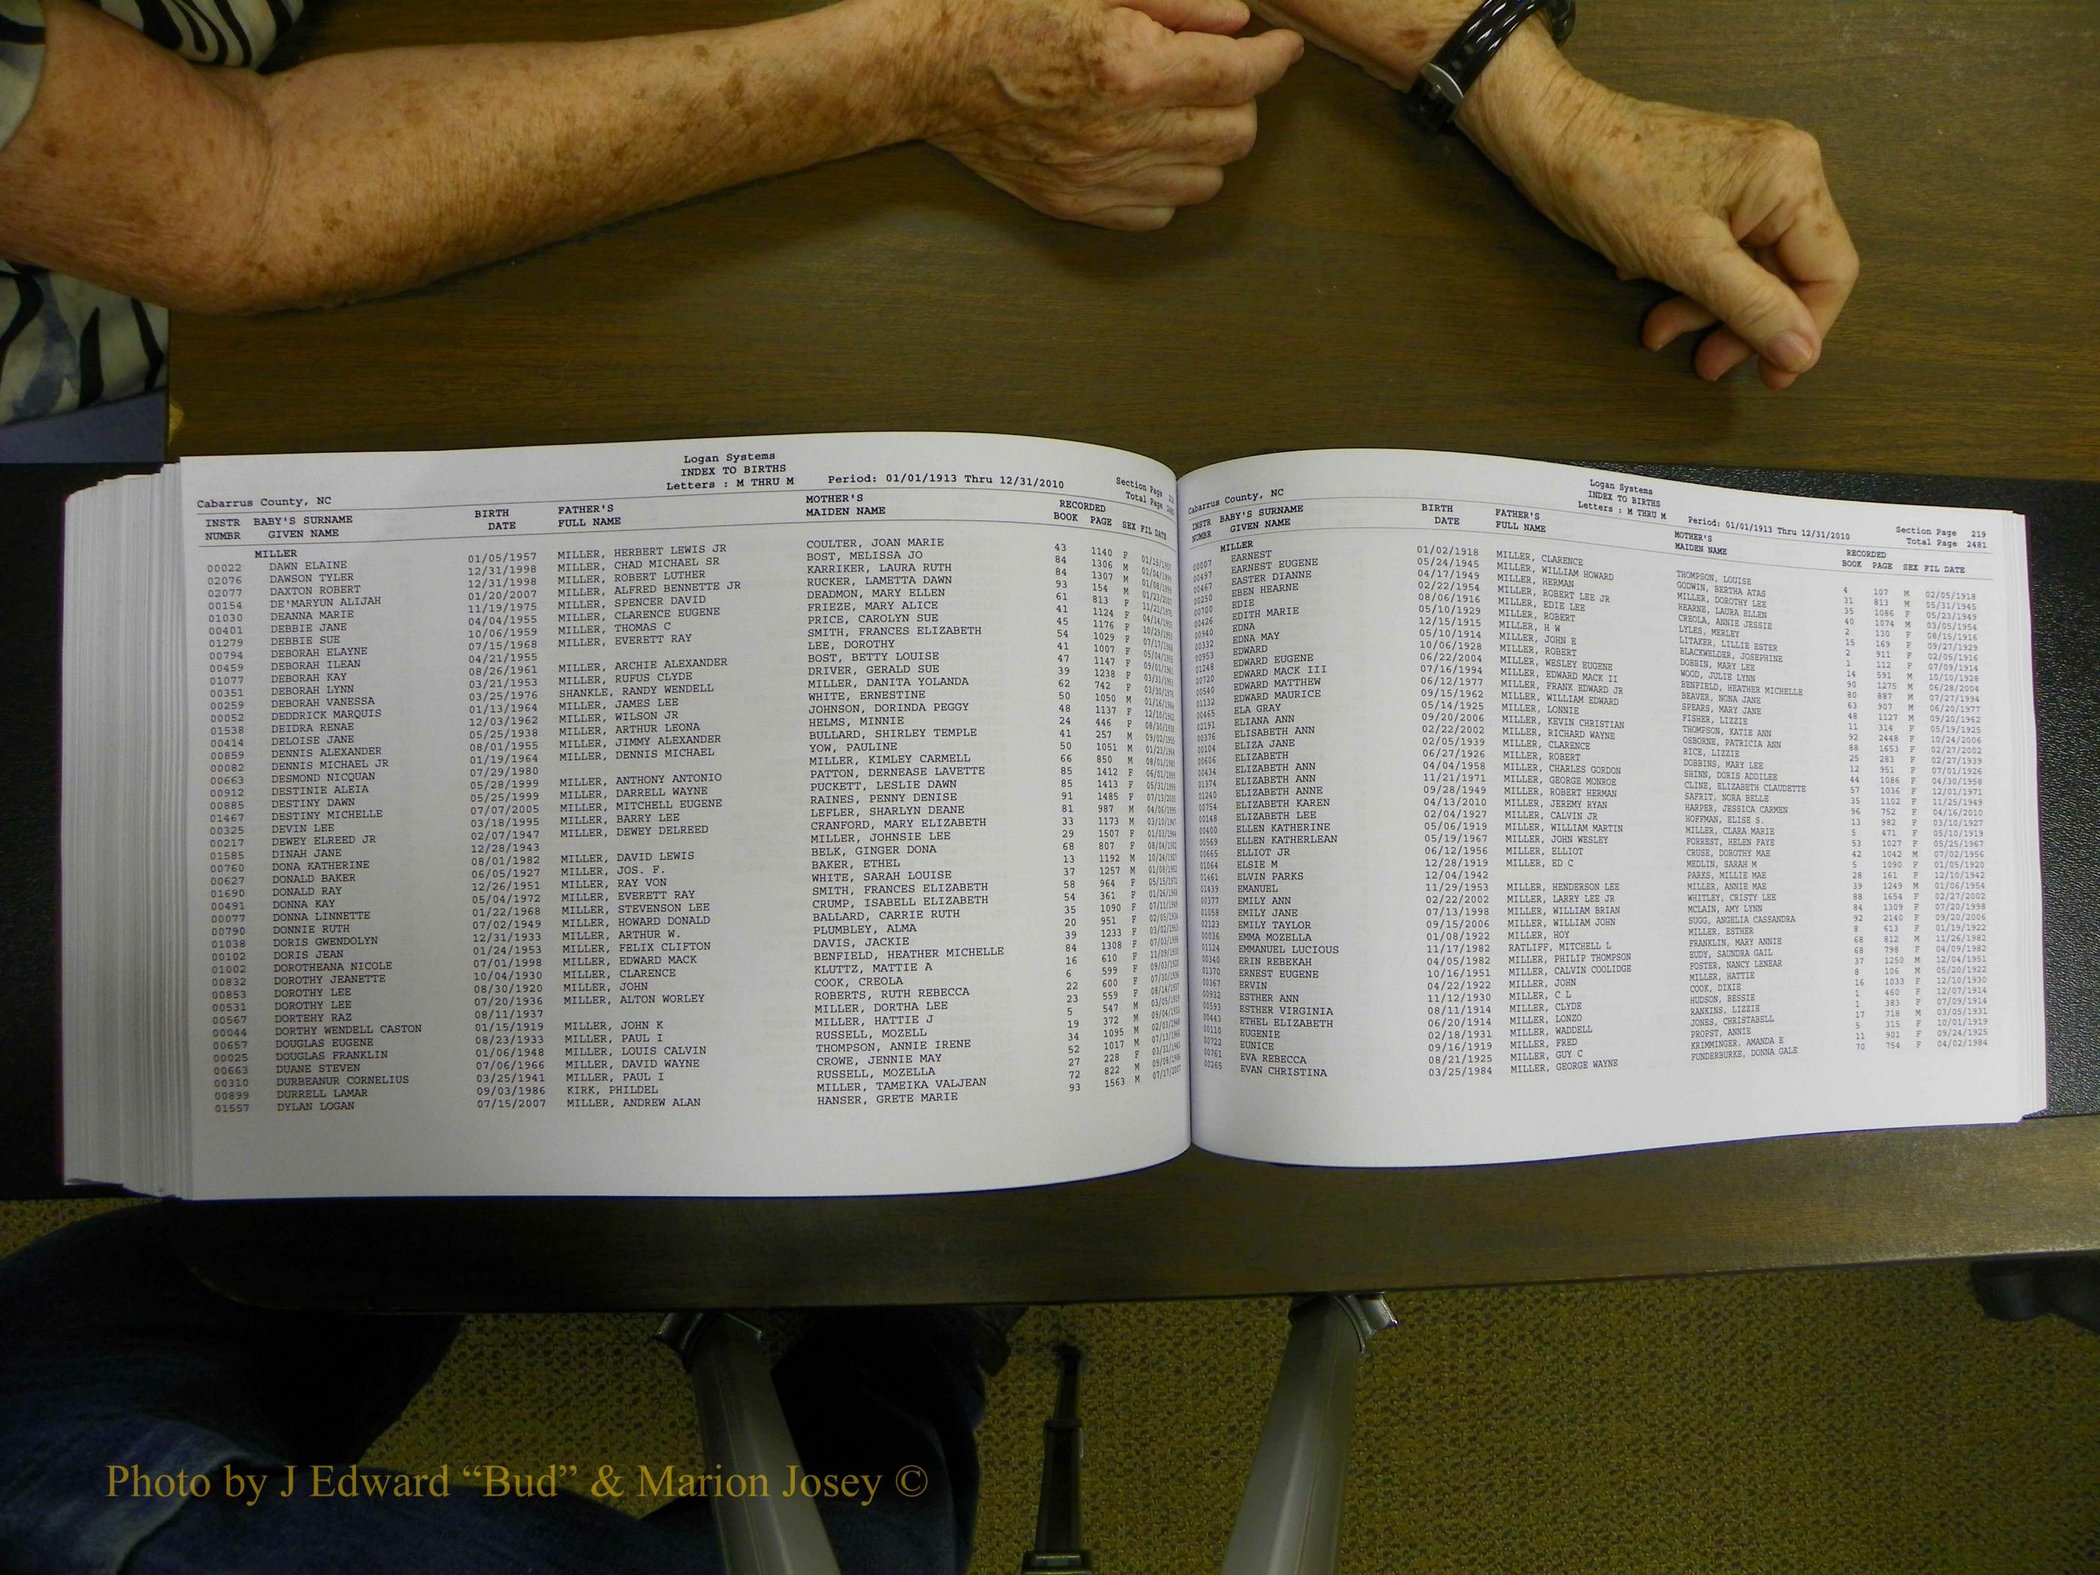 Logan Systems
INDEX TO BIRTHS
Letters : M THRU M Period: 01/01/1913 Thru 12/31/2010
Cabarrus County, NC Section Page
Total Page
INSTR BABY'S SURNAME BIRTH FATHER'S MOTHER'S RECORDED
NUMBR GIVEN NAME DATE FULL NAME MAIDEN NAME BOOK PAGE SEX FIL DATE
MILLER
00022 DAWN ELAINE 01/05/1957 MILLER, HERBERT LEWIS JR COULTER, JOAN MARIE 43 1140 F 01/15/1957
02076 DAWSON TYLER 12/31/1998 MILLER, CHAD MICHAEL SR BOST, MELISSA JO 84 1306 M
02077 DAXTON ROBERT 12/31/1998 MILLER, ROBERT LUTHER KARRIKER, LAURA RUTH 84 1307 M
00154 DE'MARYUN ALIJAH 01/20/2007 MILLER, ALFRED BENNETTE JR RUCKER, LAMETTA DAWN 93 154 M
01030 DEANNA MARIE 11/19/1975 MILLER, SPENCER DAVID DEADMON, MARY ELLEN 61 813 F
00401 DEBBIE JANE 04/04/1955 MILLER, CLARENCE EUGENE FRIEZE, MARY ALICE 41 1124 F
01279 DEBBIE SUE 10/06/1959 MILLER, THOMAS C PRICE, CAROLYN SUE 45 1176 F
00794 DEBORAH ELAYNE 07/15/1968 MILLER, EVERETT RAY SMITH, FRANCES ELIZABETH 54 1029 F
00459 DEBORAH ILEAN 04/21/1955 LEE, DOROTHY 41 1007 F
01077 DEBORAH KAY 08/26/1961 MILLER, ARCHIE ALEXANDER BOST, BETTY LOUISE 47 1147 F
00351 DEBORAH LYNN 03/21/1953 MILLER, RUFUS CLYDE DRIVER, GERALD SUE 39 1238 F
00259 DEBORAH VANESSA 03/25/1976 SHANKLE, RANDY WENDELL MILLER, DANITA YOLANDA 62 742 F
00052 DEDDRICK MARQUIS 01/13/1964 MILLER, JAMES LEE WHITE, ERNESTINE 50 1050 M
01538 DEIDRA RENAE 12/03/1962 MILLER, WILSON JR JOHNSON, DORINDA PEGGY 48 1137 F
00414 DELOISE JANE 05/25/1938 MILLER, ARTHUR LEONA HELMS, MINNIE 24 446 F
00859 DENNIS ALEXANDER 08/01/1955 MILLER, JIMMY ALEXANDER BULLARD, SHIRLEY TEMPLE 41 257 M
00082 DENNIS MICHAEL JR 01/19/1964 MILLER, DENNIS MICHAEL YOW, PAULINE 50 1051 M
00663 DESMOND NICQUAN 07/29/1980 MILLER, KIMLEY CARMELL 66 850 M
00912 DESTINIE ALEIA 05/28/1999 MILLER, ANTHONY ANTONIO PATTON, DERNEASE LAVETTE 85 1412 F
00885 DESTINY DAWN 05/25/1999 MILLER, DARRELL WAYNE PUCKETT, LESLIE DAWN 85 1413 F
01467 DESTINY MICHELLE 07/07/2005 MILLER, MITCHELL EUGENE RAINES, PENNY DENISE 91 1485 F
00325 DEVIN LEE 03/18/1995 MILLER, BARRY LEE LEFLER, SHARLYN DEANE 81 987 M
00217 DEWEY ELREED JR 02/07/1947 MILLER, DEWEY DELREED CRANFORD, MARY ELIZABETH 33 1173 M
01585 DINAH JANE 12/28/1943 MILLER, JOHNSIE LEE 29 1507 F
00760 DONA KATHERINE 08/01/1982 MILLER, DAVID LEWIS BELK, GINGER DONA 68 807 F
00627 DONALD BAKER 06/05/1927 MILLER, JOS. F. BAKER, ETHEL 13 1192 M
01690 DONALD RAY 12/26/1951 MILLER, RAY VON WHITE, SARAH LOUISE 37 1257 M
00491 DONNA KAY 05/04/1972 MILLER, EVERETT RAY SMITH, FRANCES ELIZABETH 58 964 F
00077 DONNA LINNETTE 01/22/1968 MILLER, STEVENSON LEE CRUMP, ISABELL ELIZABETH 54 361 F
00790 DONNIE RUTH 07/02/1949 MILLER, HOWARD DONALD BALLARD, CARRIE RUTH 35 1090 F
01038 DORIS GWENDOLYN 12/31/1933 MILLER, ARTHUR W. PLUMBLEY, ALMA 20 951 F
00102 DORIS JEAN 01/24/1953 MILLER, FELIX CLIFTON DAVIS, JACKIE 39 1233 F
01002 DOROTHEANA NICOLE 07/01/1998 MILLER, EDWARD MACK BENFIELD, HEATHER MICHELLE 84 1308 F
00832 DOROTHY JEANETTE 10/04/1930 MILLER, CLARENCE KLUTTZ, MATTIE A 16 610 F
00853 DOROTHY LEE 08/30/1920 MILLER, JOHN COOK, CREOLA 6 599 F
00531 DOROTHY LEE 07/20/1936 MILLER, ALTON WORLEY ROBERTS, RUTH REBECCA 22 600 F
00567 DORTEHY RAZ 08/11/1937 MILLER, DORTHA LEE 23 559 F
00044 DORTHY WENDELL CASTON 01/15/1919 MILLER, JOHN K MILLER, HATTIE J 5 547 M
00657 DOUGLAS EUGENE 08/23/1933 MILLER, PAUL I RUSSELL, MOZELL 19 372 M
00025 DOUGLAS FRANKLIN 01/06/1948 MILLER, LOUIS CALVIN THOMPSON, ANNIE IRENE 34 1095 M
00663 DUANE STEVEN 07/06/1966 MILLER, DAVID WAYNE CROWE, JENNIE MAY 52 1017 M
00310 DURBEANUR CORNELIUS 03/25/1941 MILLER, PAUL I RUSSELL, MOZELLA 27 228 F
00899 DURRELL LAMAR 09/03/1986 KIRK, PHILDEL MILLER, TAMEIKA VALJEAN 72 822 M
01557 DYLAN LOGAN 07/15/2007 MILLER, ANDREW ALAN HANSER, GRETE MARIE 93 1563 M 07/17/2007
Logan Systems
INDEX TO BIRTHS
Letters : M THRU M Period: 01/01/1913 Thru 12/31/2010
Cabarrus County, NC Section Page 219
Total Page 2481
INSTR BABY'S SURNAME BIRTH FATHER'S MOTHER'S RECORDED
NUMBR GIVEN NAME DATE FULL NAME MAIDEN NAME BOOK PAGE SEX FIL DATE
MILLER
00007 EARNEST 01/02/1918 MILLER, CLARENCE THOMPSON, LOUISE 4 107 M 02/05/1918
00497 EARNEST EUGENE 05/24/1945 MILLER, WILLIAM HOWARD GODWIN, BERTHA ATAS 31 813 M 05/31/1945
00467 EASTER DIANNE 04/17/1949 MILLER, HERMAN MILLER, DOROTHY LEE 35 1086 F 05/23/1949
00250 EBEN HEARNE 02/22/1954 MILLER, ROBERT LEE JR HEARNE, LAURA ELLEN 40 1074 M 03/05/1954
00700 EDIE 08/06/1916 MILLER, EDIE LEE CREOLA, ANNIE JESSIE 2 130 F 08/15/1916
00426 EDITH MARIE 05/10/1929 MILLER, ROBERT LYLES, MERLEY 15 169 F 09/27/1929
00940 EDNA 12/15/1915 MILLER, H W LITAKER, LILLIE ESTER 2 911 F 02/05/1916
00332 EDNA MAY 05/10/1914 MILLER, JOHN E BLACKWELDER, JOSEPHINE 1 112 F 07/09/1914
00953 EDWARD 10/06/1928 MILLER, ROBERT DOBBIN, MARY LEE 14 591 M 10/10/1928
01248 EDWARD EUGENE 06/22/2004 MILLER, WESLEY EUGENE WOOD, JULIE LYNN 90 1275 M 06/28/2004
00720 EDWARD MACK III 07/16/1994 MILLER, EDWARD MACK II BENFIELD, HEATHER MICHELLE 80 887 M 07/27/1994
00540 EDWARD MATTHEW 06/12/1977 MILLER, FRANK EDWARD JR BEAVER, NONA JANE 63 907 M 06/20/1977
01132 EDWARD MAURICE 09/15/1962 MILLER, WILLIAM EDWARD SPEARS, MARY JANE 48 1127 M 09/20/1962
00465 ELA GRAY 05/14/1925 MILLER, LONNIE FISHER, LIZZIE 11 314 F 05/19/1925
02191 ELIANA ANN 09/20/2006 MILLER, KEVIN CHRISTIAN THOMPSON, KATIE ANN 92 2448 F 10/24/2006
00376 ELISABETH ANN 02/22/2002 MILLER, RICHARD WAYNE OSBORNE, PATRICIA ANN 88 1653 F 02/27/2002
00104 ELIZA JANE 02/05/1939 MILLER, CLARENCE RICE, LIZZIE 25 283 F 02/27/1939
00606 ELIZABETH 06/27/1926 MILLER, ROBERT DOBBINS, MARY LEE 12 951 F 07/01/1926
00434 ELIZABETH ANN 04/04/1958 MILLER, CHARLES GORDON SHINN, DORIS ADDILEE 44 1086 F 04/30/1958
01374 ELIZABETH ANN 11/21/1971 MILLER, GEORGE MONROE CLINE, ELIZABETH CLAUDETTE 57 1036 F 12/01/1971
01240 ELIZABETH ANNE 09/28/1949 MILLER, ROBERT HERMAN SAFRIT, NORA BELLE 35 1102 F 11/25/1949
00754 ELIZABETH KAREN 04/13/2010 MILLER, JEREMY RYAN HARPER, JESSICA CARMEN 96 752 F 04/16/2010
00148 ELIZABETH LEE 02/04/1927 MILLER, CALVIN JR HOFFMAN, ELISE S. 13 982 F 03/10/1927
00400 ELLEN KATHERINE 05/06/1919 MILLER, WILLIAM MARTIN MILLER, CLARA MARIE 5 471 F 05/10/1919
00569 ELLEN KATHERLEAN 05/19/1967 MILLER, JOHN WESLEY FORREST, HELEN FAYE 53 1027 F 05/25/1967
00665 ELLIOT JR 06/12/1956 MILLER, ELLIOT CRUSE, DOROTHY MAE 42 1042 M 07/02/1956
01064 ELSIE M 12/28/1919 MILLER, ED C MEDLIN, SARAH M 5 1090 F 01/05/1920
01461 ELVIN PARKS 12/04/1942 PARKS, MILLIE MAE 28 161 F 12/10/1942
01439 EMANUEL 11/29/1953 MILLER, HENDERSON LEE MILLER, ANNIE MAE 39 1249 M 01/06/1954
00377 EMILY ANN 02/22/2002 MILLER, LARRY LEE JR WHITLEY, CRISTY LEE 88 1654 F 02/27/2002
01058 EMILY JANE 07/13/1998 MILLER, WILLIAM BRIAN MCLAIN, AMY LYNN 84 1309 F 07/20/1998
02123 EMILY TAYLOR 09/15/2006 MILLER, WILLIAM JOHN SUGG, ANGELIA CASSANDRA 92 2140 F 09/20/2006
00036 EMMA MOZELLA 01/08/1922 MILLER, HOY MILLER, ESTHER 8 613 F 01/19/1922
01124 EMMANUEL LUCIOUS 11/17/1982 RATLIFF, MITCHELL L FRANKLIN, MARY ANNIE 68 812 M 11/26/1982
00340 ERIN REBEKAH 04/05/1982 MILLER, PHILIP THOMPSON EUDY, SAUNDRA GAIL 68 798 F 04/09/1982
01370 ERNEST EUGENE 10/16/1951 MILLER, CALVIN COOLIDGE FOSTER, NANCY LENEAR 37 1250 M 12/04/1951
00367 ERVIN 04/22/1922 MILLER, JOHN MILLER, HATTIE 8 106 M 05/20/1922
00932 ESTHER ANN 11/12/1930 MILLER, C L COOK, DIXIE 16 1033 F 12/10/1930
00593 ESTHER VIRGINIA 08/11/1914 MILLER, CLYDE HUDSON, BESSIE 1 460 F 12/07/1914
00443 ETHEL ELIZABETH 06/20/1914 MILLER, LONZO RANKINS, LIZZIE 1 383 F 07/09/1914
00110 EUGENIE 02/18/1931 MILLER, WADDELL JONES, CHRISTABELL 17 718 M 03/05/1931
00722 EUNICE 09/16/1919 MILLER, FRED PROPST, ANNIE 5 315 F 10/01/1919
00761 EVA REBECCA 08/21/1925 MILLER, GUY C KRIMMINGER, AMANDA E 11 901 F 09/24/1925
00265 EVAN CHRISTINA 03/25/1984 MILLER, GEORGE WAYNE FUNDERBURKE, DONNA GALE 70 754 F 04/02/1984
Photo by J Edward “Bud” & Marion Josey ©